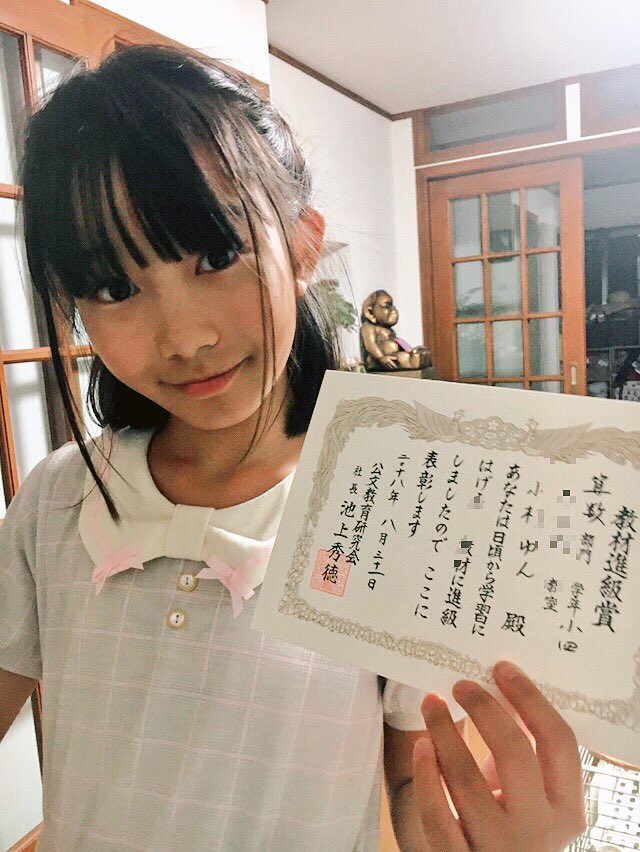 教材進級賞
算数 部門 学年 小四
教室
小木 ゆん 殿
あなたは日頃から学習に
はげ 教材に進級
しましたので ここに
表彰します
二〇一八年 八月三十一日
公文教育研究会
社長 池上秀徳